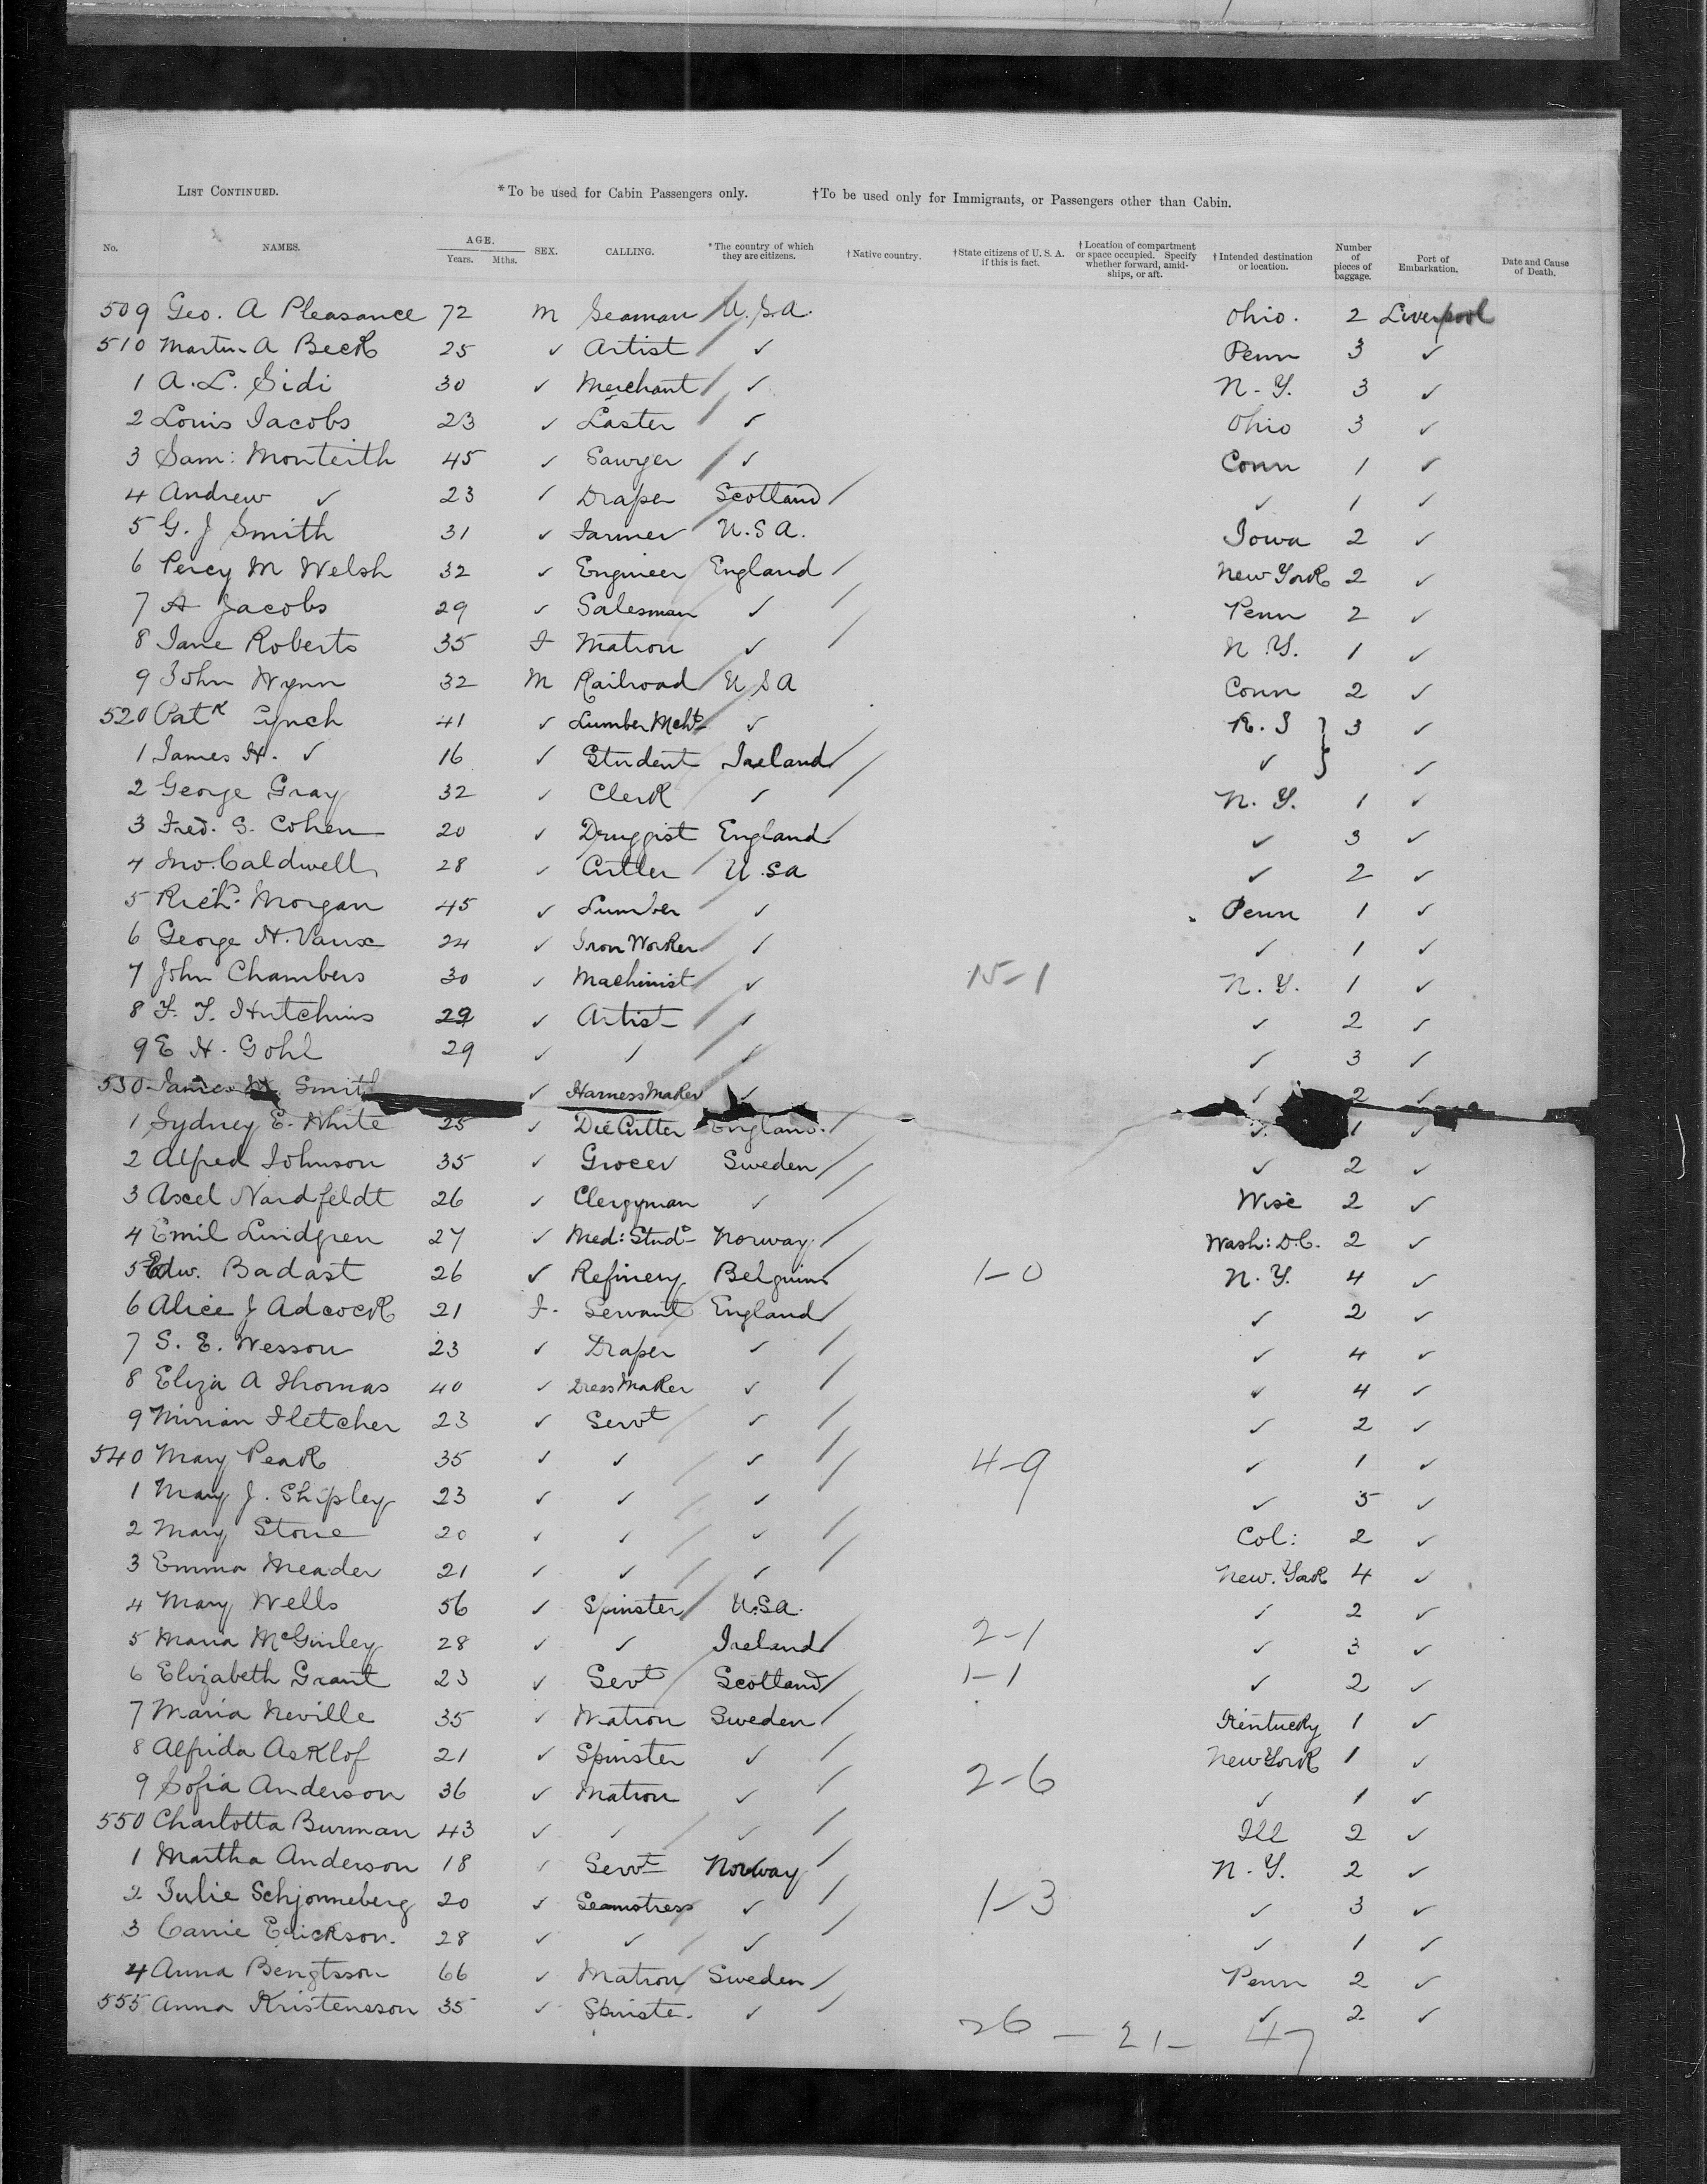 LIST CONTINUED. *To be used for Cabin Passengers only. †To be used only for Immigrants, or Passengers other than Cabin.
No. NAMES. AGE. Years. Mths. SEX. CALLING. *The country of which they are citizens. †Native country. †State citizens of U. S. A. if this is fact. †Location of compartment or space occupied. Specify whether forward, amidships, or aft. †Intended destination or location. Number of pieces of baggage. Port of Embarkation. Date and Cause of Death.
509 Geo. A Pleasance 72 M Seaman U.S.A. Ohio. 2 Liverpool
510 Martin A Beck 25 ✓ Artist ✓ Penn 3 ✓
1 A. L. Sidi 30 ✓ Merchant ✓ N-Y. 3 ✓
2 Louis Jacobs 23 ✓ Laster ✓ Ohio 3 ✓
3 Sam: Monteith 45 ✓ Sawyer ✓ Conn 1 ✓
4 Andrew ✓ 23 ✓ Draper Scotland ✓ 1 ✓
5 G. J Smith 31 ✓ Farmer U.S.A. Iowa 2 ✓
6 Percy M Welsh 32 ✓ Engineer England New York 2 ✓
7 A Jacobs 29 ✓ Salesman ✓ Penn 2 ✓
8 Jane Roberts 35 F Matron ✓ N.Y. 1 ✓
9 John Wynn 32 M Railroad U S A Conn 2 ✓
520 Patk Lynch 41 ✓ Lumber Mcht ✓ R. I } 3 ✓
1 James H. ✓ 16 ✓ Student Ireland ✓ ✓
2 George Gray 32 ✓ Clerk ✓ N. Y. 1 ✓
3 Fred. S. Cohen 20 ✓ Druggist England ✓ 3 ✓
4 Jno. Caldwell 28 ✓ Cutler U.Sa ✓ 2 ✓
5 Richd. Morgan 45 ✓ Lumber ✓ Penn 1 ✓
6 George H. Vaux 24 ✓ Iron Worker ✓ ✓ 1 ✓
7 John Chambers 30 ✓ Machinist ✓ 15-1 N. Y. 1 ✓
8 F. T. Hutchins 29 ✓ Artist ✓ ✓ 2 ✓
9 E H. Gohl 29 ✓ ✓ ✓ ✓ 3 ✓
530 James Smith ✓ Harness Maker ✓ ✓ 2 ✓
1 Sydney E. White 25 ✓ Die Cutter England. ✓ 1 ✓
2 Alfred Johnson 35 ✓ Grocer Sweden ✓ 2 ✓
3 Axel Nardfeldt 26 ✓ Clergyman ✓ Wisc 2 ✓
4 Emil Lindgren 27 ✓ Med: Studt Norway Wash: D.C. 2 ✓
5 Edw. Badast 26 ✓ Refinery Belguim 1-0 N. Y. 4 ✓
6 Alice J Adcock 21 F. Servant England ✓ 2 ✓
7 S. E. Wesson 23 ✓ Draper ✓ ✓ 4 ✓
8 Eliza A Thomas 40 ✓ Dress Maker ✓ ✓ 4 ✓
9 Mirian Fletcher 23 ✓ Servt ✓ ✓ 2 ✓
540 Mary Peak 35 ✓ ✓ ✓ 4-9 ✓ 1 ✓
1 Mary J. Shipley 23 ✓ ✓ ✓ ✓ 5 ✓
2 Mary Stone 20 ✓ ✓ ✓ Col: 2 ✓
3 Emma Meader 21 ✓ ✓ ✓ New. York 4 ✓
4 Mary Wells 56 ✓ Spinster U.Sa. ✓ 2 ✓
5 Maria McGinley 28 ✓ ✓ Ireland 2-1 ✓ 3 ✓
6 Elizabeth Grant 23 ✓ Servt Scotland 1-1 ✓ 2 ✓
7 Maria Neville 35 ✓ Matron Sweden Kentucky 1 ✓
8 Alfrida Asklof 21 ✓ Spinster ✓ New York 1 ✓
9 Sofia Anderson 36 ✓ Matron ✓ 2-6 ✓ 1 ✓
550 Charlotta Burman 43 ✓ ✓ ✓ Ill 2 ✓
1 Martha Anderson 18 ✓ Servt Norway N. Y. 2 ✓
2 Julie Schjonneberg 20 ✓ Seamstress ✓ 1-3 ✓ 3 ✓
3 Carrie Erickson. 28 ✓ ✓ ✓ ✓ 1 ✓
4 Anna Bengtsson 66 ✓ Matron Sweden Penn 2 ✓
555 Anna Kristensson 35 ✓ Spinste. ✓ ✓ 2 ✓
26 - 21 - 47